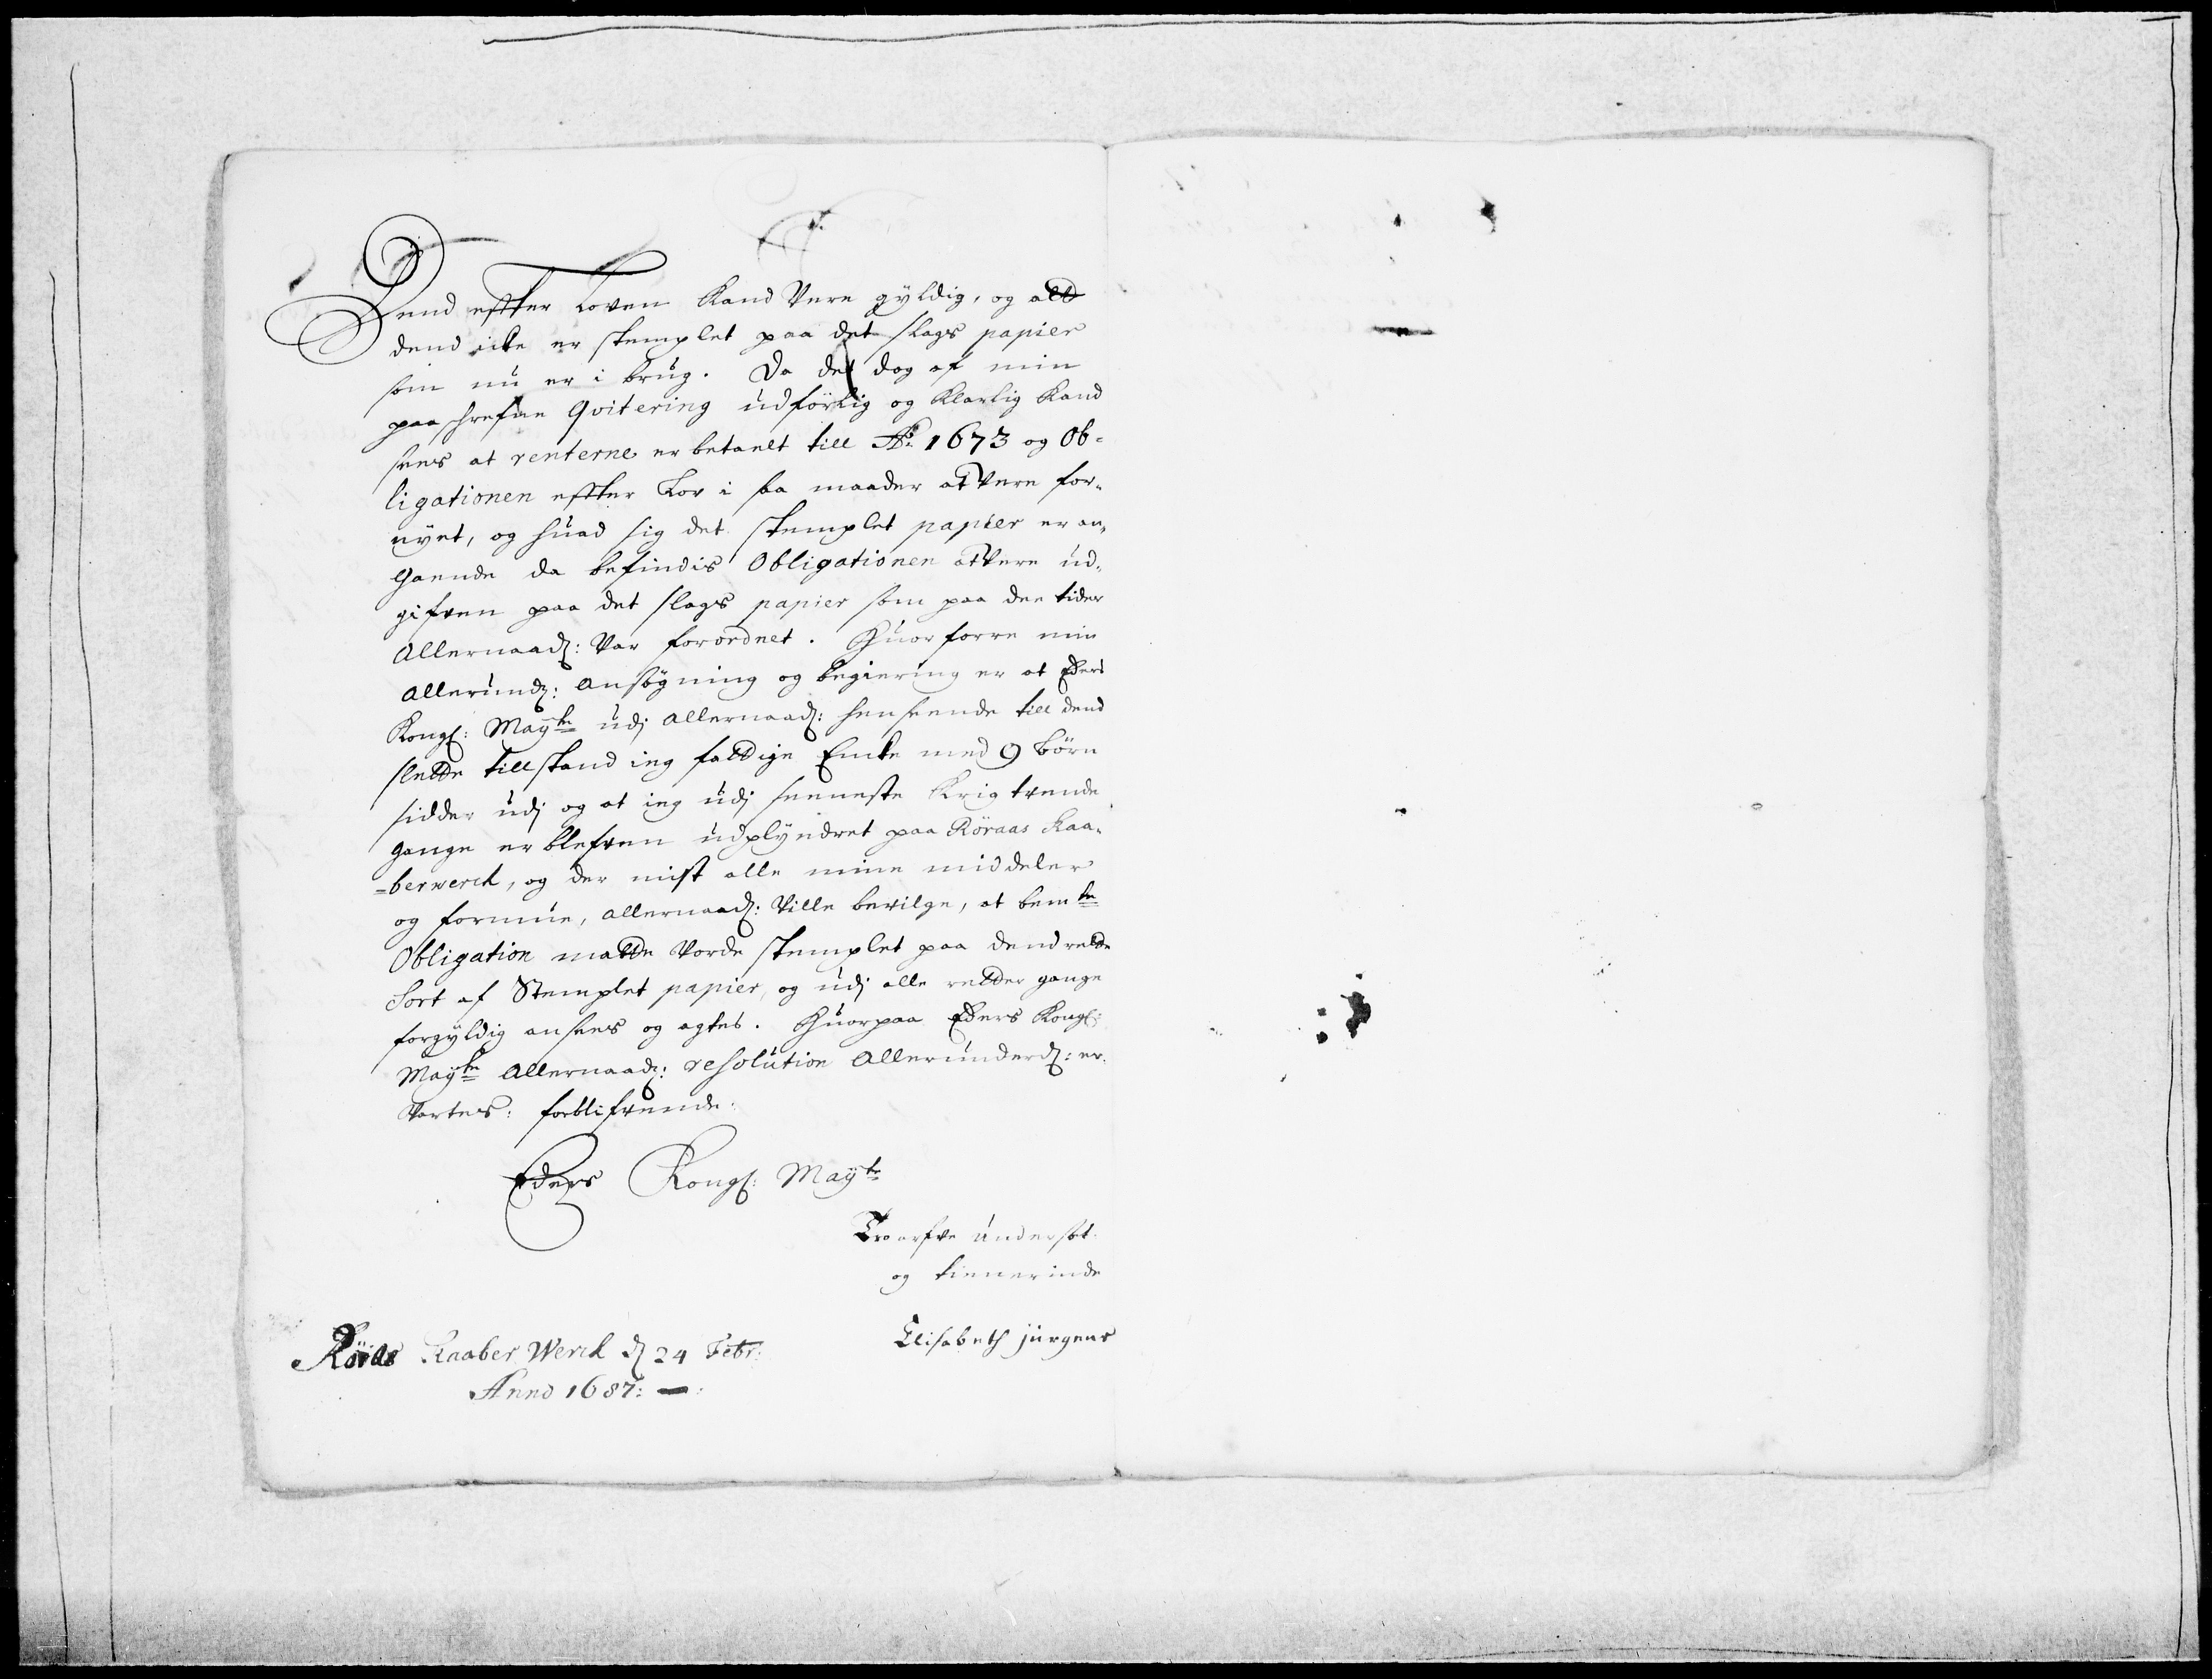 Dend effter Loven kand Vere gyldig, og att
dend icke er stemplet paa det slags papier
som nu er i brug. Da det dog af min
paaschrefne Qvitering udförlig og klarlig kand
sees at renterne er betaelt till Ao. 1673 og Ob-
ligationen effter Lov i saa maader at Vere for-
nyet, og huad sig det stemplet papier er an-
gaende da befindis Obligationen at Vere ud-
gifven paa det slags papier som paa dee tider
Allernaad: Var forordnet. Huorforre min
allerund: ansögning og begiering er at Eders
Kongl: Mayte udj allernaad: henseende till dend
slette tillstand ieg fattige Encke med 9 börn
sidder udj og at ieg udj seeneste Krig trende
gange er blefven udplyndret paa Röraas Kaa-
=berwerck, og der mist alle mine middeler
og formue, allernaad: Ville bevilge, at bemte
Obligation matte Vorde stemplet paa dend rette
Sort af Stemplet papier, og udj alle retter gange
forgyldig ansees og agtes. Huorpaa Eders Kongl:
Mayte Allernaad: resolution Allerunderd: er-
Vartes: forblifvende.
Eders Kongl: Mayts
Tro arfve undersot
og tienerinde
Elisabeth jürgens
Röraas Kaaber Werck d 24 Febr:
Anno 1687: —: